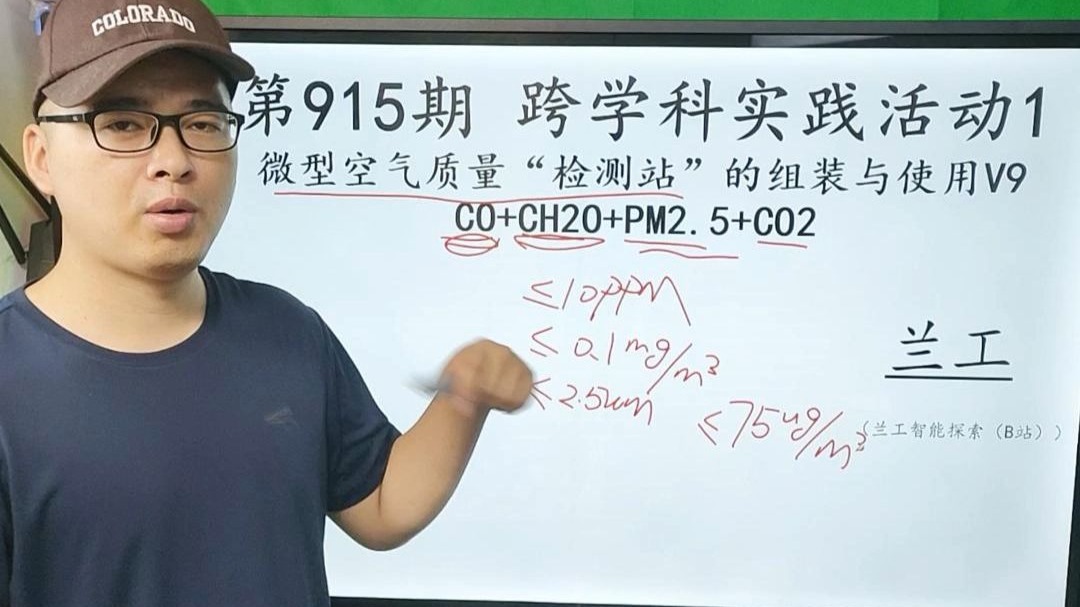 COLORADO
第915期 跨学科实践活动1
微型空气质量“检测站”的组装与使用V9
CO+CH2O+PM2.5+CO2
≤10PPM
≤0.1mg/m³
≤2.5um
≤75ug/m³
兰工
(兰工智能探索（B站）)